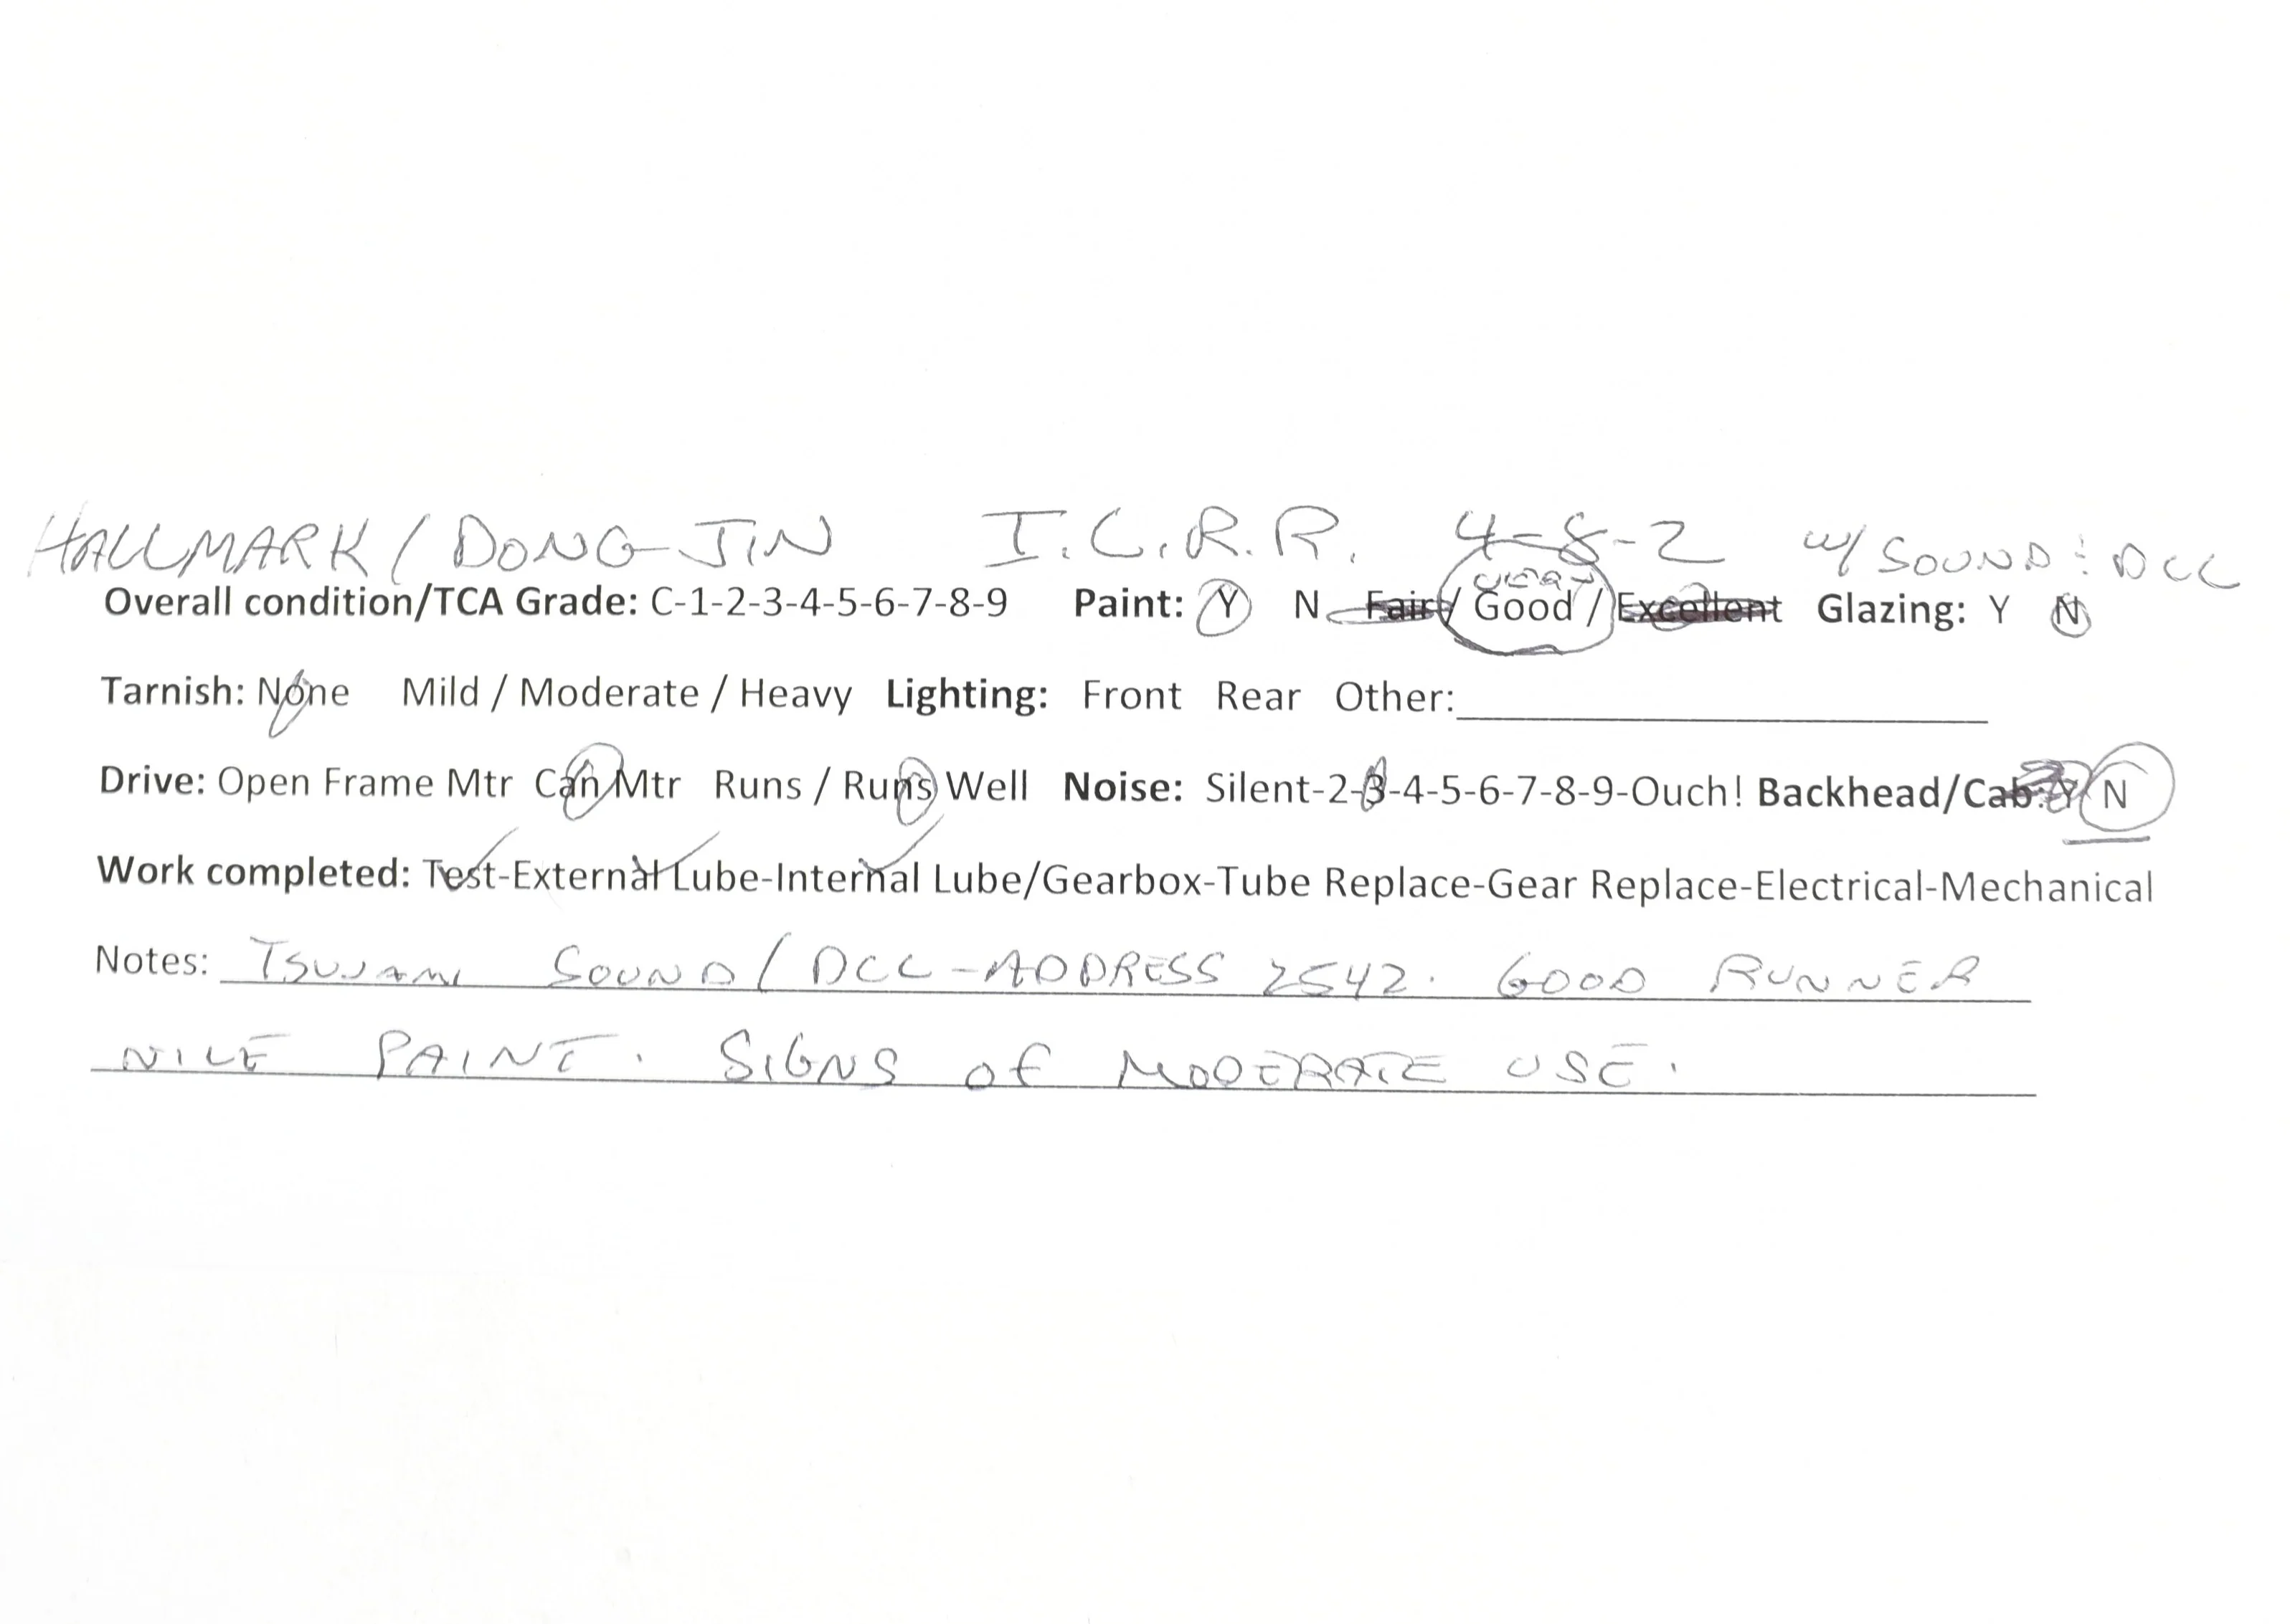 HALLMARK / DONG-JIN I.C.R.R. 4-8-2 w/ SOUND & DCC
VERY
Overall condition/TCA Grade: C-1-2-3-4-5-6-7-8-9 Paint: Y N Fair / Good / Excellent Glazing: Y N
Tarnish: None Mild / Moderate / Heavy Lighting: Front Rear Other:
Drive: Open Frame Mtr Can Mtr Runs / Runs Well Noise: Silent-2-3-4-5-6-7-8-9-Ouch! Backhead/Cab: Y N
Work completed: Test-External Lube-Internal Lube/Gearbox-Tube Replace-Gear Replace-Electrical-Mechanical
Notes: TSUNAMI SOUND / DCC - ADDRESS 2542. GOOD RUNNER
NICE PAINT. SIGNS OF MODERATE USE.